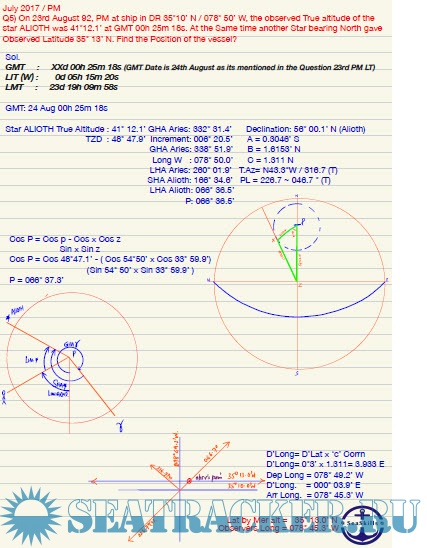 July 2017 / PM
Q5) On 23rd August 92, PM at ship in DR 35°10' N / 078° 50' W, the observed True altitude of the
star ALIOTH was 41°12.1' at GMT 00h 25m 18s. At the Same time another Star bearing North gave
Observed Latitude 35° 13' N. Find the Position of the vessel?
Sol.
GMT : XXd 00h 25m 18s (GMT Date is 24th August as its mentioned in the Question 23rd PM LT)
LIT (W) : 0d 05h 15m 20s
LMT : 23d 19h 09m 58s
GMT: 24 Aug 00h 25m 18s
Star ALIOTH True Altitude : 41° 12.1' GHA Aries: 332° 31.4' Declination: 56° 00.1' N (Alioth)
TZD : 48° 47.9' Increment: 006° 20.5' A = 0.3046' S
GHA Aries: 338° 51.9' B = 1.6153' N
Long W : 078° 50.0' C = 1.311 N
LHA Aries: 260° 01.9' T.Az= N43.3°W / 316.7 (T)
SHA Alioth: 166° 34.6' PL = 226.7 ~ 046.7 ° (T)
LHA Alioth: 066° 36.5'
P: 066° 36.5'
Cos P = Cos p - Cos x Cos z
Sin x Sin z
Cos P = Cos 48°47.1' - ( Cos 54°50' x Cos 33° 59.9')
(Sin 54° 50' x Sin 33° 59.9' )
P = 066° 37.3'
P
W
E
S
Alioth
GMT
P
LHA P
γ
35° 13.0'N
35° 10.0'N
D'Long= D'Lat x 'c' Corrn
D'Long= 0°3' x 1.311= 3.933 E
Dep Long = 078° 49.2' W
D'Long. = 000° 03.9' E
Arr Long. = 078° 45.3' W
Lat by Mer.alt = 35° 13.0' N
Observers Long = 078° 45.3' W
SEATRACKER.RU
SeaSkills